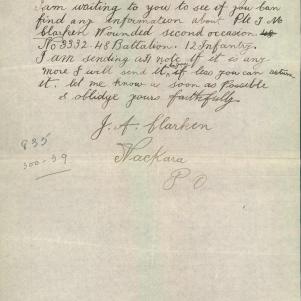 I am waiting to you to see if you can
find any information about Pte J N
Clarken Wounded second occasion
No 3332. 48 Battalion. 12 Infantry.
I am sending a note if it is any
more I will send it, if less you can return
it. let me know as soon as Possible
& oblidge yours faithfully.
J. A. Clarken
Nackara
P O
835
300-39